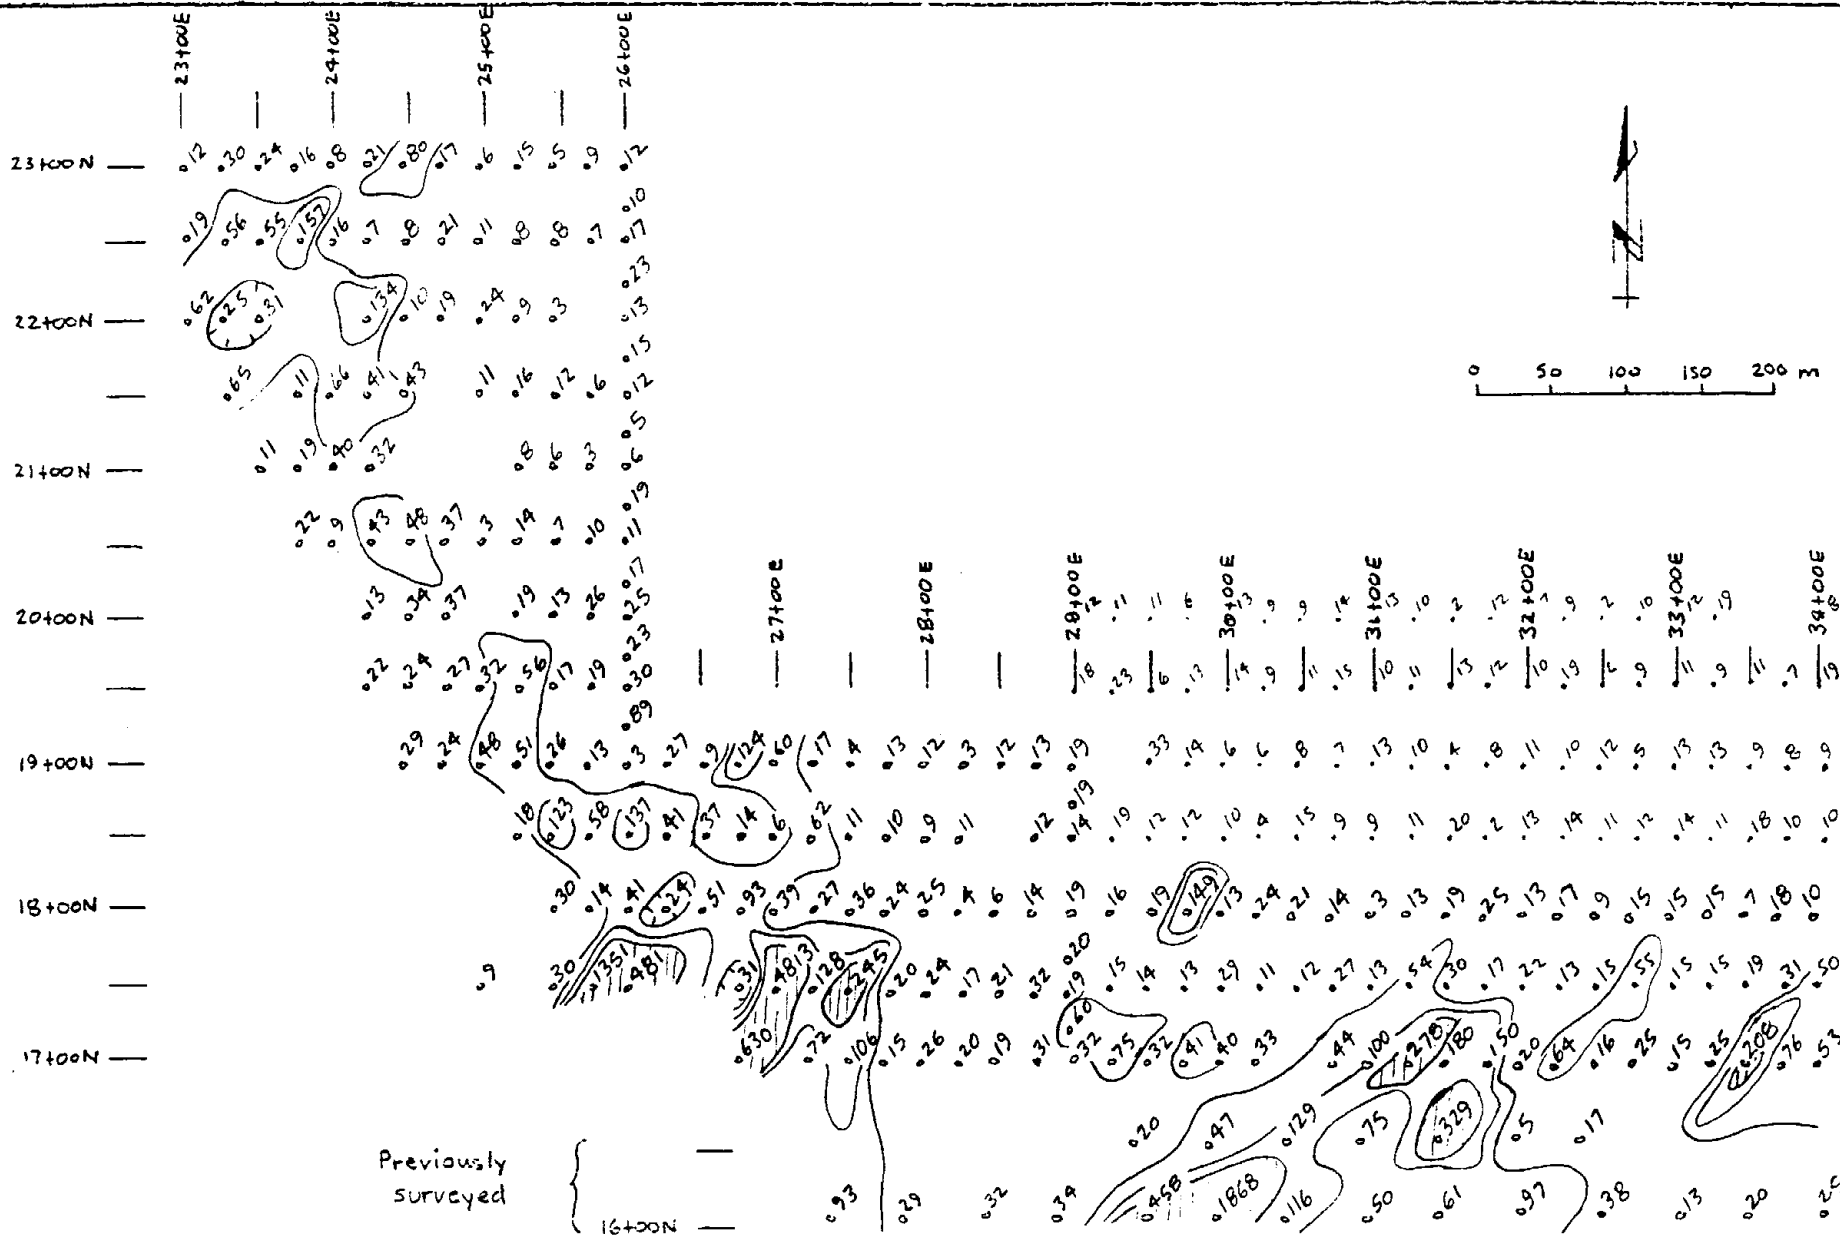 23+00E 24+00E 25+00E 26+00E
23+00N 12 30 24 16 8 21 80 17 6 15 5 9 12
10
19 56 55 157 16 7 8 21 11 8 8 7 17
23
22+00N 62 25 31 134 10 19 24 9 3 13
0 50 100 150 200 m
15
65 11 66 41 43 11 16 12 6 12
5
21+00N 11 19 40 32 8 6 3 6
19
22 9 43 48 37 3 14 7 10 11
17
27+00E 28+00E 28+00E 30+00E 31+00E 32+00E 33+00E 34+00E
20+00N 13 34 37 19 13 26 25 12 11 11 6 13 9 9 14 13 10 2 12 7 9 2 10 12 19 8
23
22 24 27 32 56 17 19 30 18 23 6 13 14 9 11 15 10 11 13 12 10 19 6 9 11 9 11 7 19
89
19+00N 29 24 48 51 26 13 3 27 9 124 60 17 4 13 12 3 12 13 19 33 14 6 6 8 7 13 10 4 8 11 10 12 5 13 13 9 8 9
19
18 123 58 137 41 37 14 6 62 11 10 9 11 12 14 19 12 12 10 4 15 9 9 11 20 2 13 14 11 12 14 11 18 10 10
18+00N 30 14 41 24 51 93 39 27 36 24 25 4 6 14 19 16 19 149 13 24 21 14 3 13 19 25 13 17 9 15 15 15 7 18 10
20
9 30 1351 481 31 48 131 128 245 20 24 17 21 32 19 15 14 13 29 11 12 27 13 54 30 17 22 13 15 55 15 15 19 31 50
60
17+00N 630 72 106 15 26 20 19 31 32 75 32 41 40 33 44 100 278 180 150 20 64 16 25 15 25 208 76 53
20 47 129 75 329 5 17
Previously
surveyed
16+00N 93 29 32 34 458 1868 116 50 61 97 38 13 20